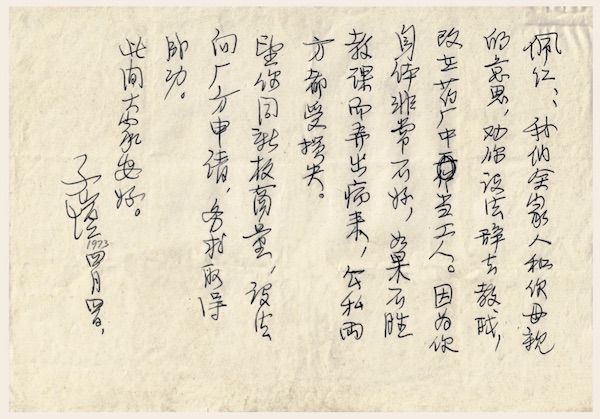 佩仁：我们全家人和你母親
的意思，劝你设法辞去教职，
改在药厂中当工人。因为你
身体非常不好，如果不胜
教课而弄出病来，公私两
方都受损失。
望你同新枚商量，设法
向厂方申请，务求取得
成功。
此间大家安好。
子恺 1973 四月四日，